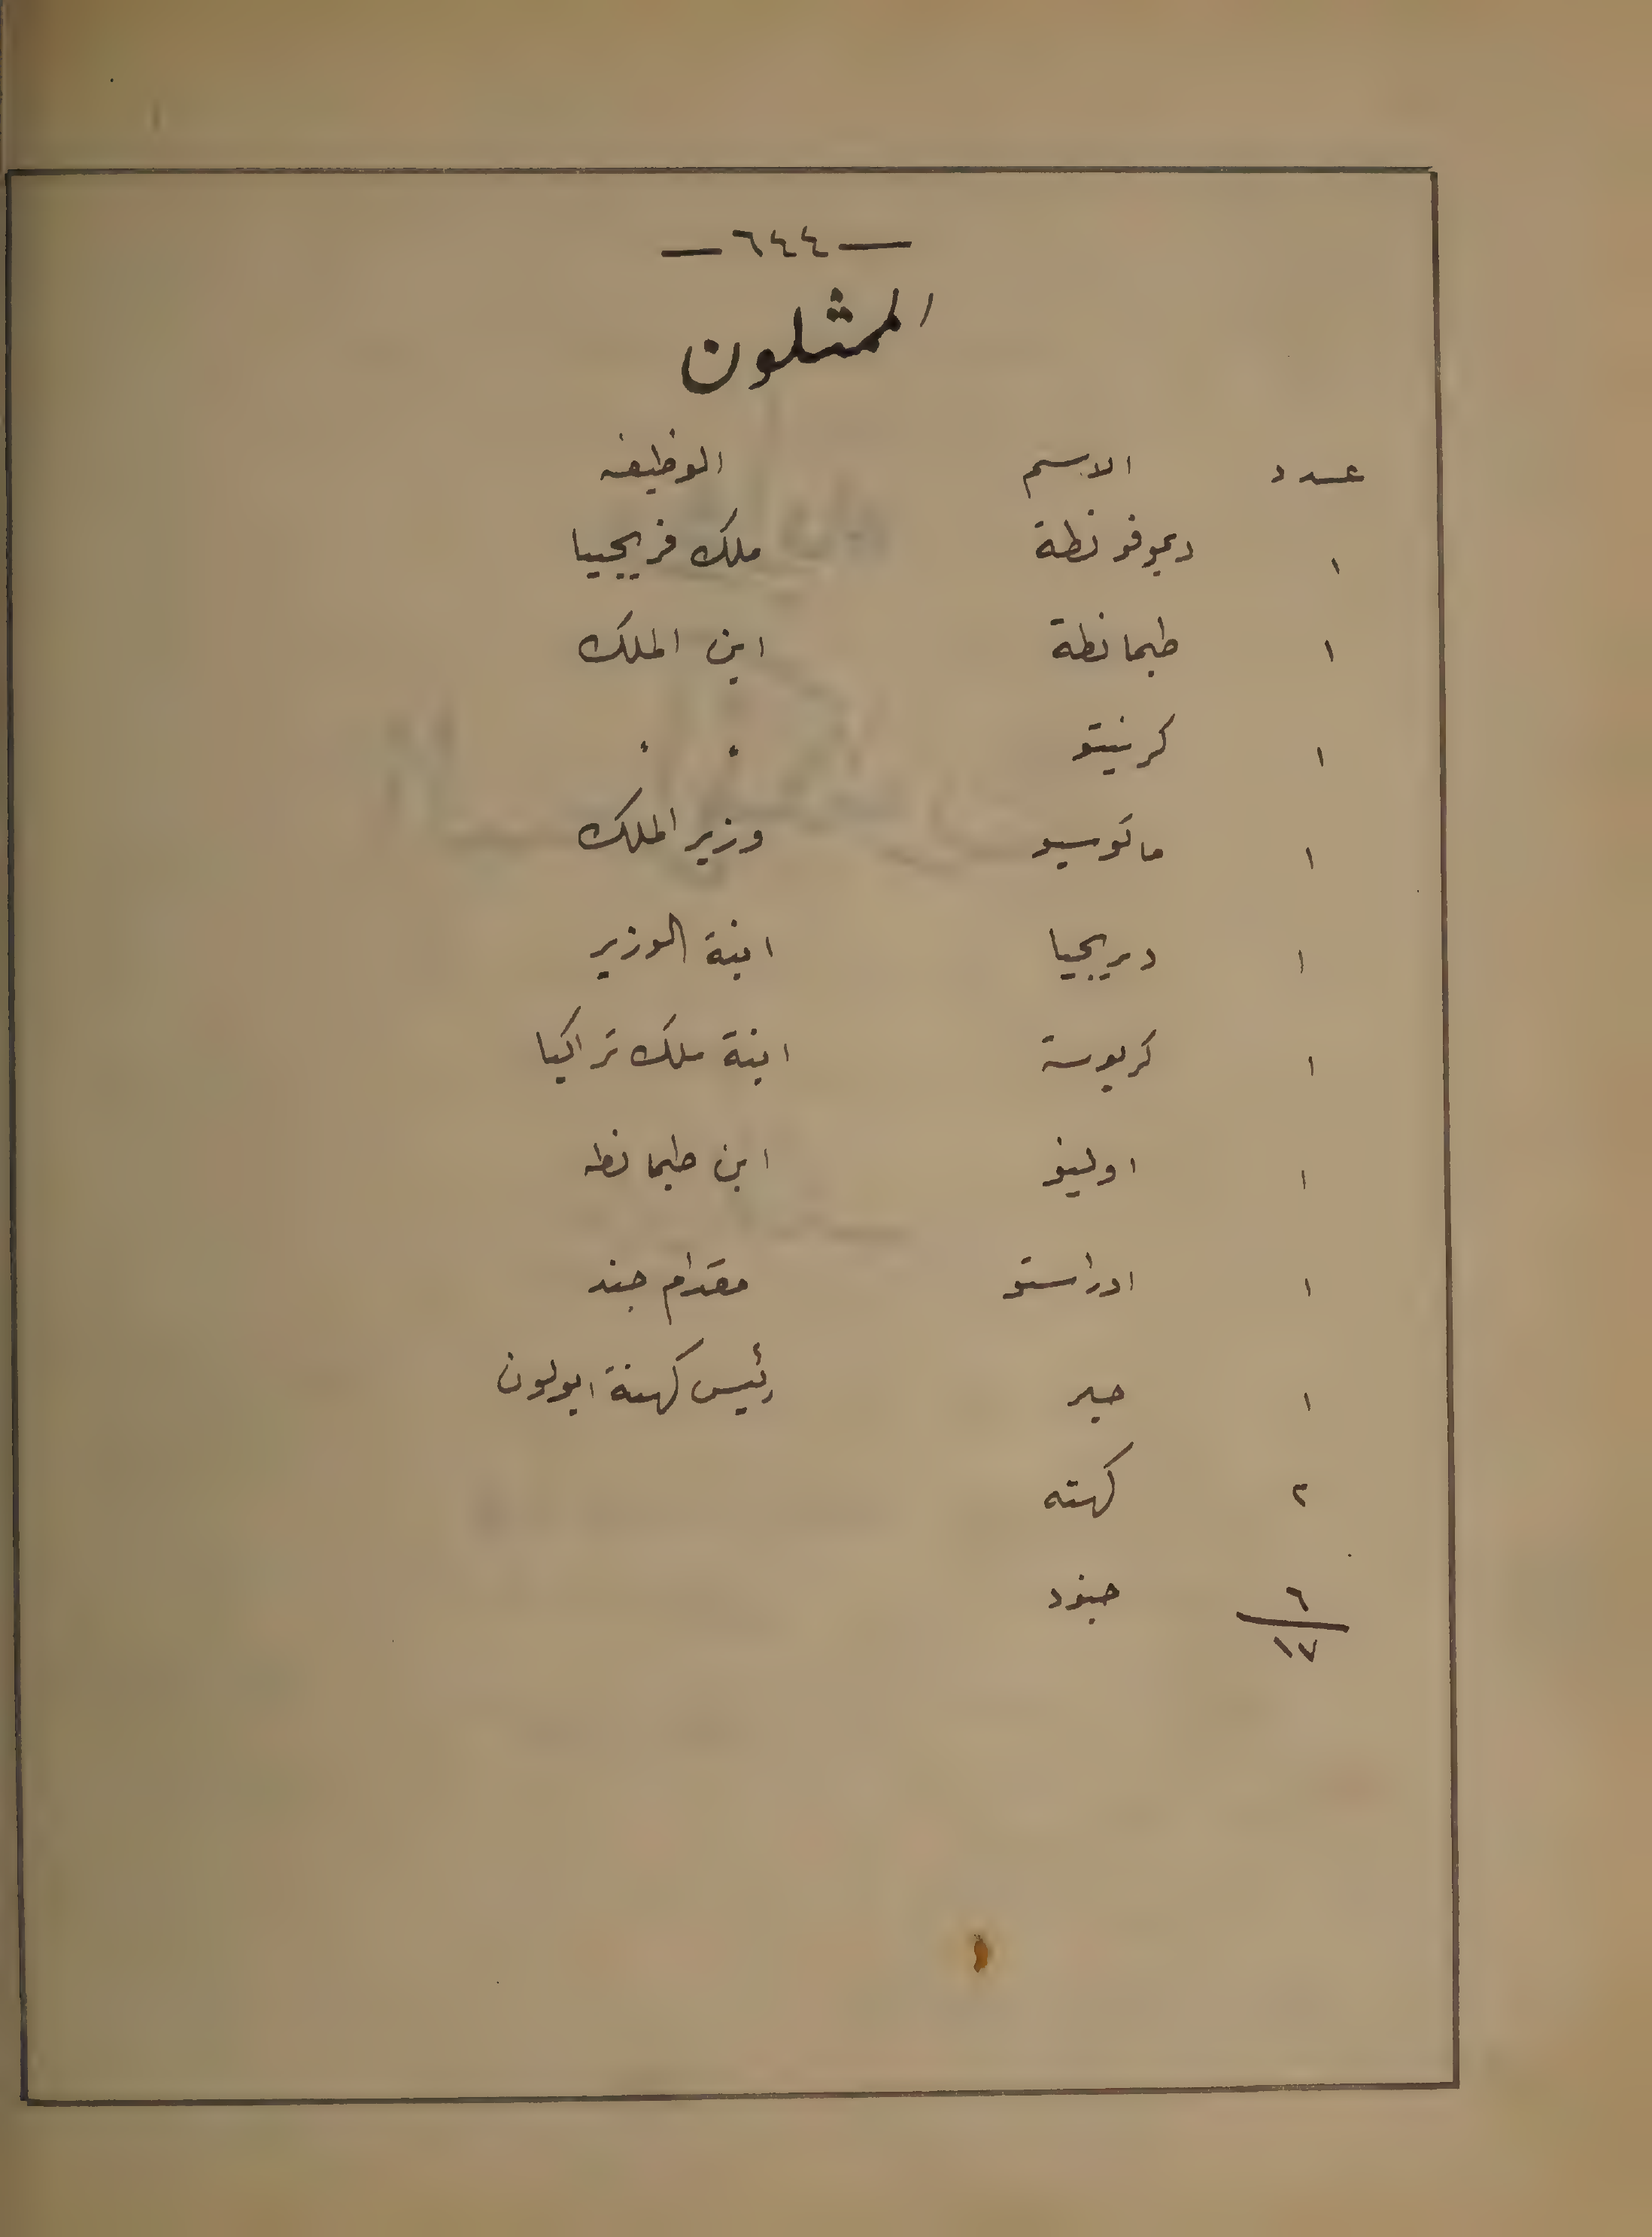 — ٦٤٤ —
الممثلون
عدد الاسم الوظيفه
١ ديموفونطة ملك فريجييا
١ طيمانطة ابن الملك
١ كرنيتو 〃 〃
١ ماتوسيو وزير الملك
١ دريجيا ابنة الوزير
١ كريوسة ابنة ملك تراكيا
١ اولينو ابن طيمانطه
١ ادراستو مقدام جند
١ حبر رئيس كهنة ابولون
٢ كهنه
٦ جنود
١٧